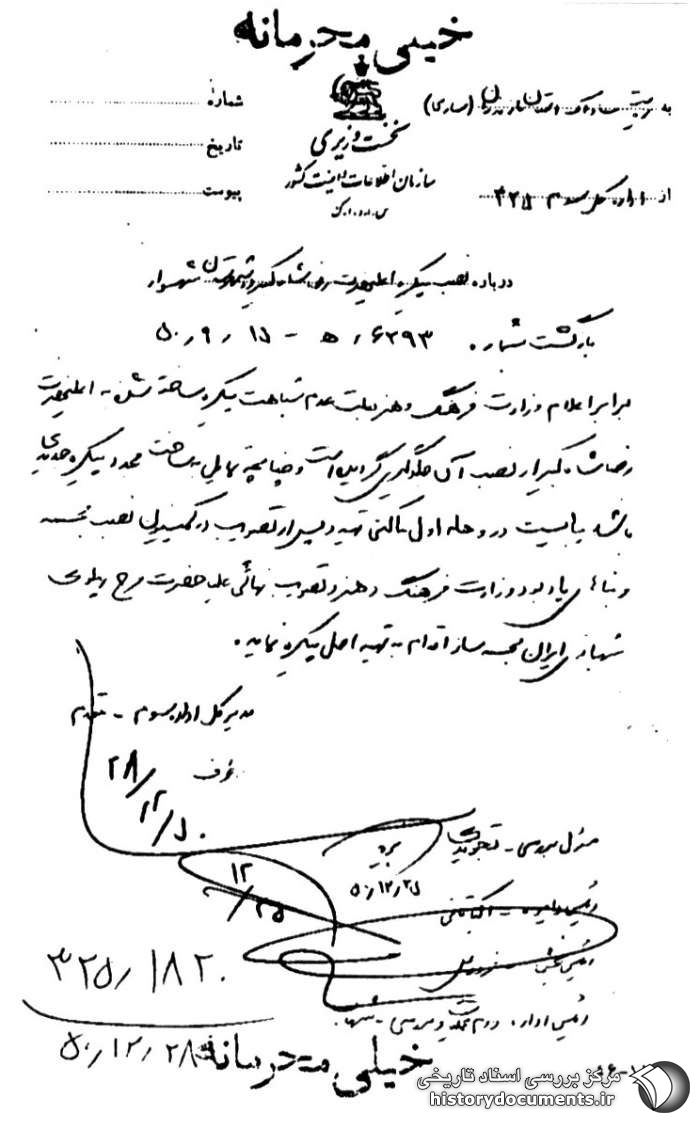 خیلی محرمانه
به ریاست ساواک استان مازندران (ساری)
شماره
نخست وزیری
تاریخ
سازمان اطلاعات و امنیت کشور
از اداره کل سوم ۳۲۵
پیوست
س.ا.و.ا.ک
درباره نصب پیکره اعلیحضرت رضاشاه کبیر در شهرستان شهسوار
بازگشت شماره
برابر اعلام وزارت فرهنگ و هنر بعلت عدم شباهت پیکره ساخته شده به اعلیحضرت
رضاشاه کبیر از نصب آن جلوگیری گردیده است و چنانچه تمایل به ساخت مجدد پیکره جدیدی
باشد بایست در وهله اول ماکتی تهیه و پس از تصویب در کمیسیون نصب مجسمه
و بناهای یادبود وزارت فرهنگ و هنر و تصویب نهائی علیاحضرت فرح پهلوی
شهبانوی ایران مجسمه ساز اقدام به تهیه اصل پیکره نماید.
مدیر کل اداره سوم - مقدم
از طرف
۲۸/۱۲/۵۰
مسئول بررسی -
۵۰/۱۲/۲۵
رئیس دایره -
۱۲/۲۵
رئیس بخش
۳۲۵/۱۸۲۰
رئیس اداره دوم عملیات و بررسی -
۵۰/۱۲/۲۸
خیلی محرمانه
مرکز بررسی اسناد تاریخی
historydocuments.ir